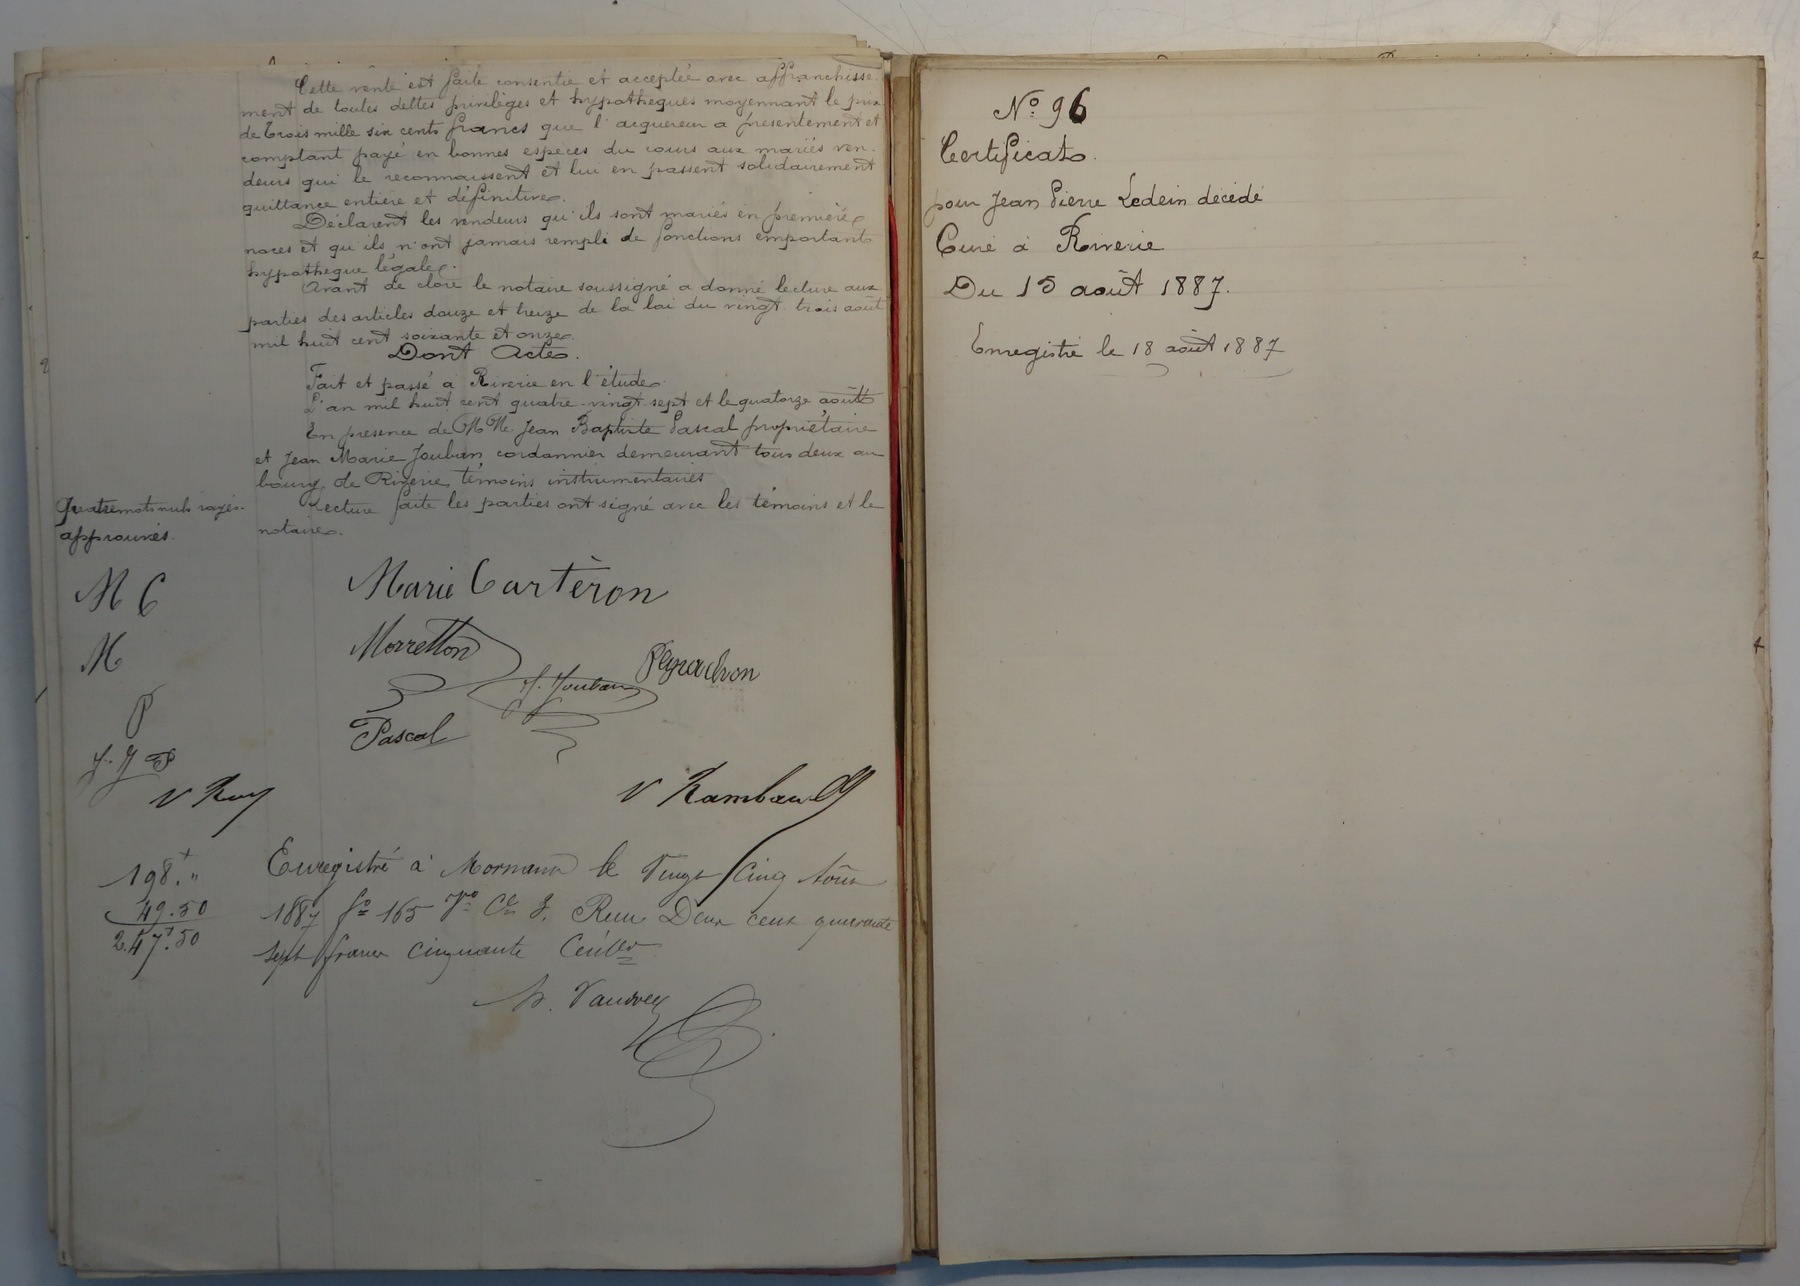 Cette vente est faite consentie et acceptée avec affranchisse-
ment de toutes dettes privilèges et hypotheques moyennant le prix
de Trois mille six cents francs que l'acquereur a presentement et
comptant payé en bonnes especes du cours aux mariés ven-
deurs qui le reconnaissent et lui en passent solidairement
quittance entière et définitive.
Déclarent les vendeurs qu'ils sont mariés en premières
noces et qu'ils n'ont jamais rempli de fonctions emportant
hypotheque légale.
Avant de clore le notaire soussigné a donné lecture aux
parties des articles douze et treize de la loi du vingt-trois août
mil huit cent soixante et onze.
Dont Acte.
Fait et passé à Riverie en l'étude
L'an mil huit cent quatre-vingt sept et le quatorze août
En présence de MM. Jean Baptiste Pascal propriétaire
et Jean Marie Jouban cordonnier demeurant tous deux au
bourg de Riverie témoins instrumentaires
Lecture faite les parties ont signé avec les témoins et le
notaire.
Quatre mots nuls rayés
approuvés.
M C
M
P
J. J P
V Ruy
Marie Cartèron
Morretton
Peyrachon
J. Jouban
Pascal
V Rambaud
198."
49.50
247.50
Enregistré à Mornant le Vingt Cinq Août
1887 fo 165 Vo Ce 3. Reçu Deux cent quarante
sept francs cinquante Centes
No. 96
Certificat.
pour Jean Pierre Ledein décédé
Curé à Riverie
Du 15 août 1887.
Enregistré le 18 août 1887